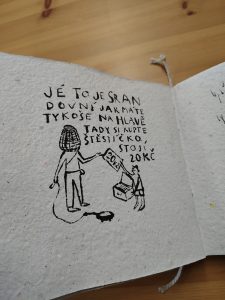 JÉ TO JE SRAN
DOVNÍ JAK MÁTE
TY KOŠE NA HLAVĚ
TADY SI KUPTE
ŠTĚSTÍČKO,
STOJÍ
20 KČ
20,-